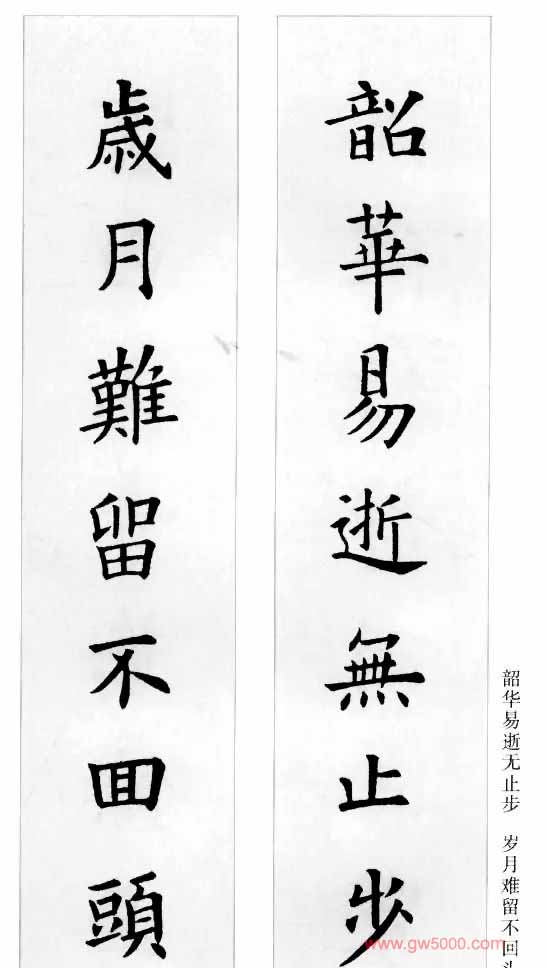 韶華易逝無止步
歲月難留不回頭
韶华易逝无止步 岁月难留不回头
www.gw5000.com